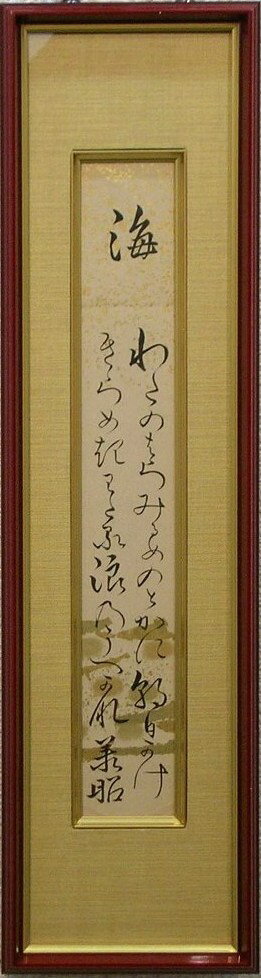 海
わたのはらみるめのとかに朝日かけ
きらめきわたる浪のうへかな